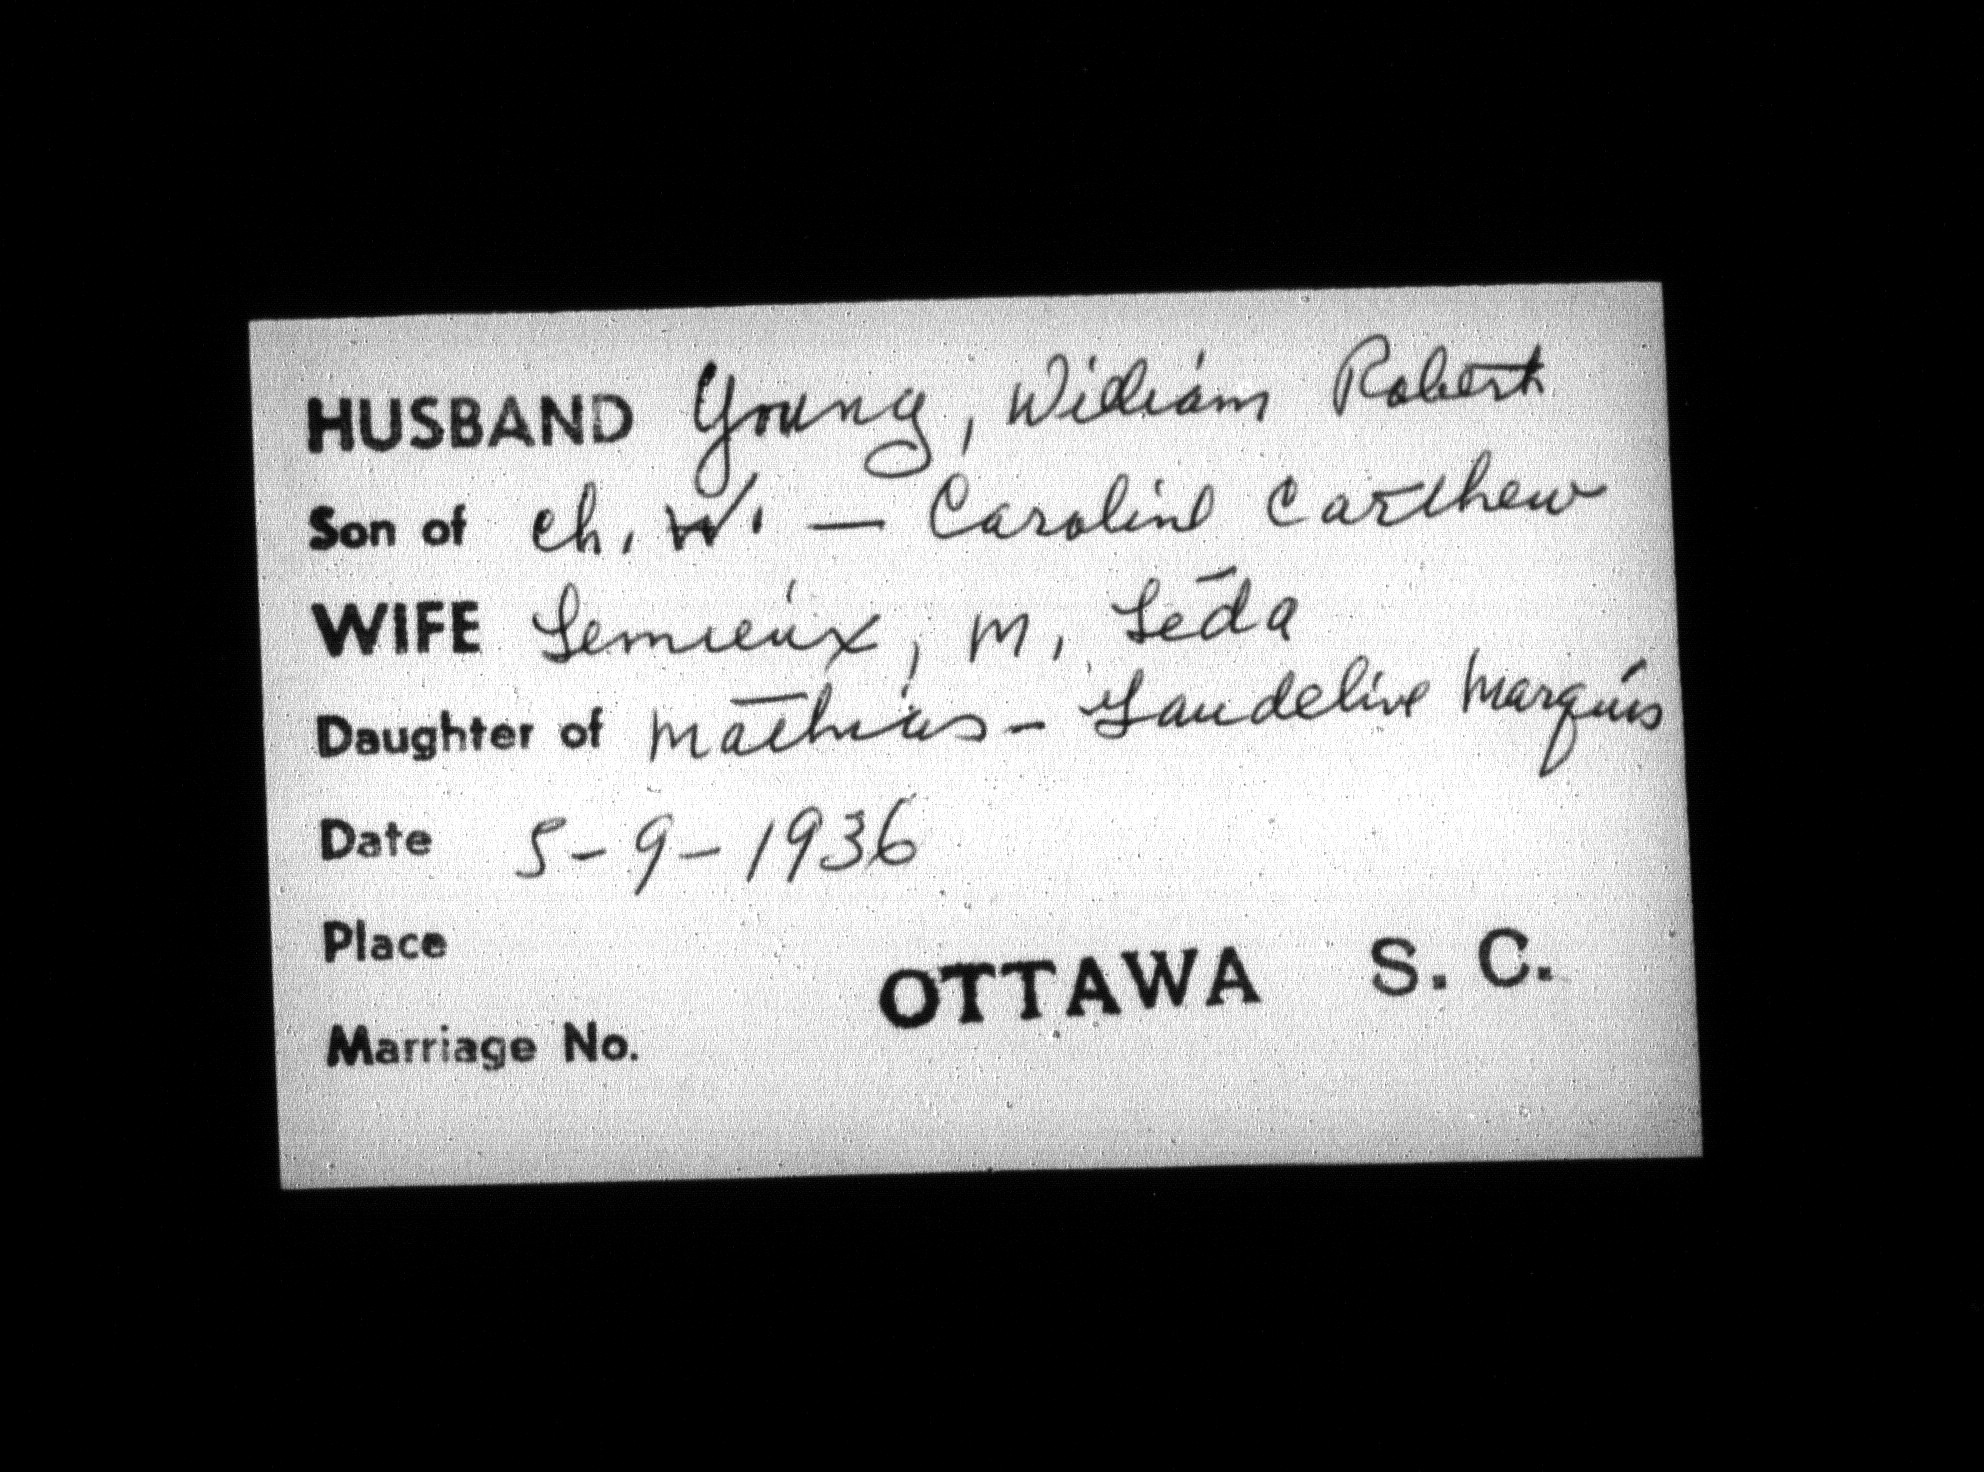 HUSBAND Young, William Robert
Son of Ch. W. — Caroline Carthew
WIFE Lemieux, M. Léda
Daughter of Mathias - Laudelive Marquis
Date 5-9-1936
Place
OTTAWA S. C.
Marriage No.